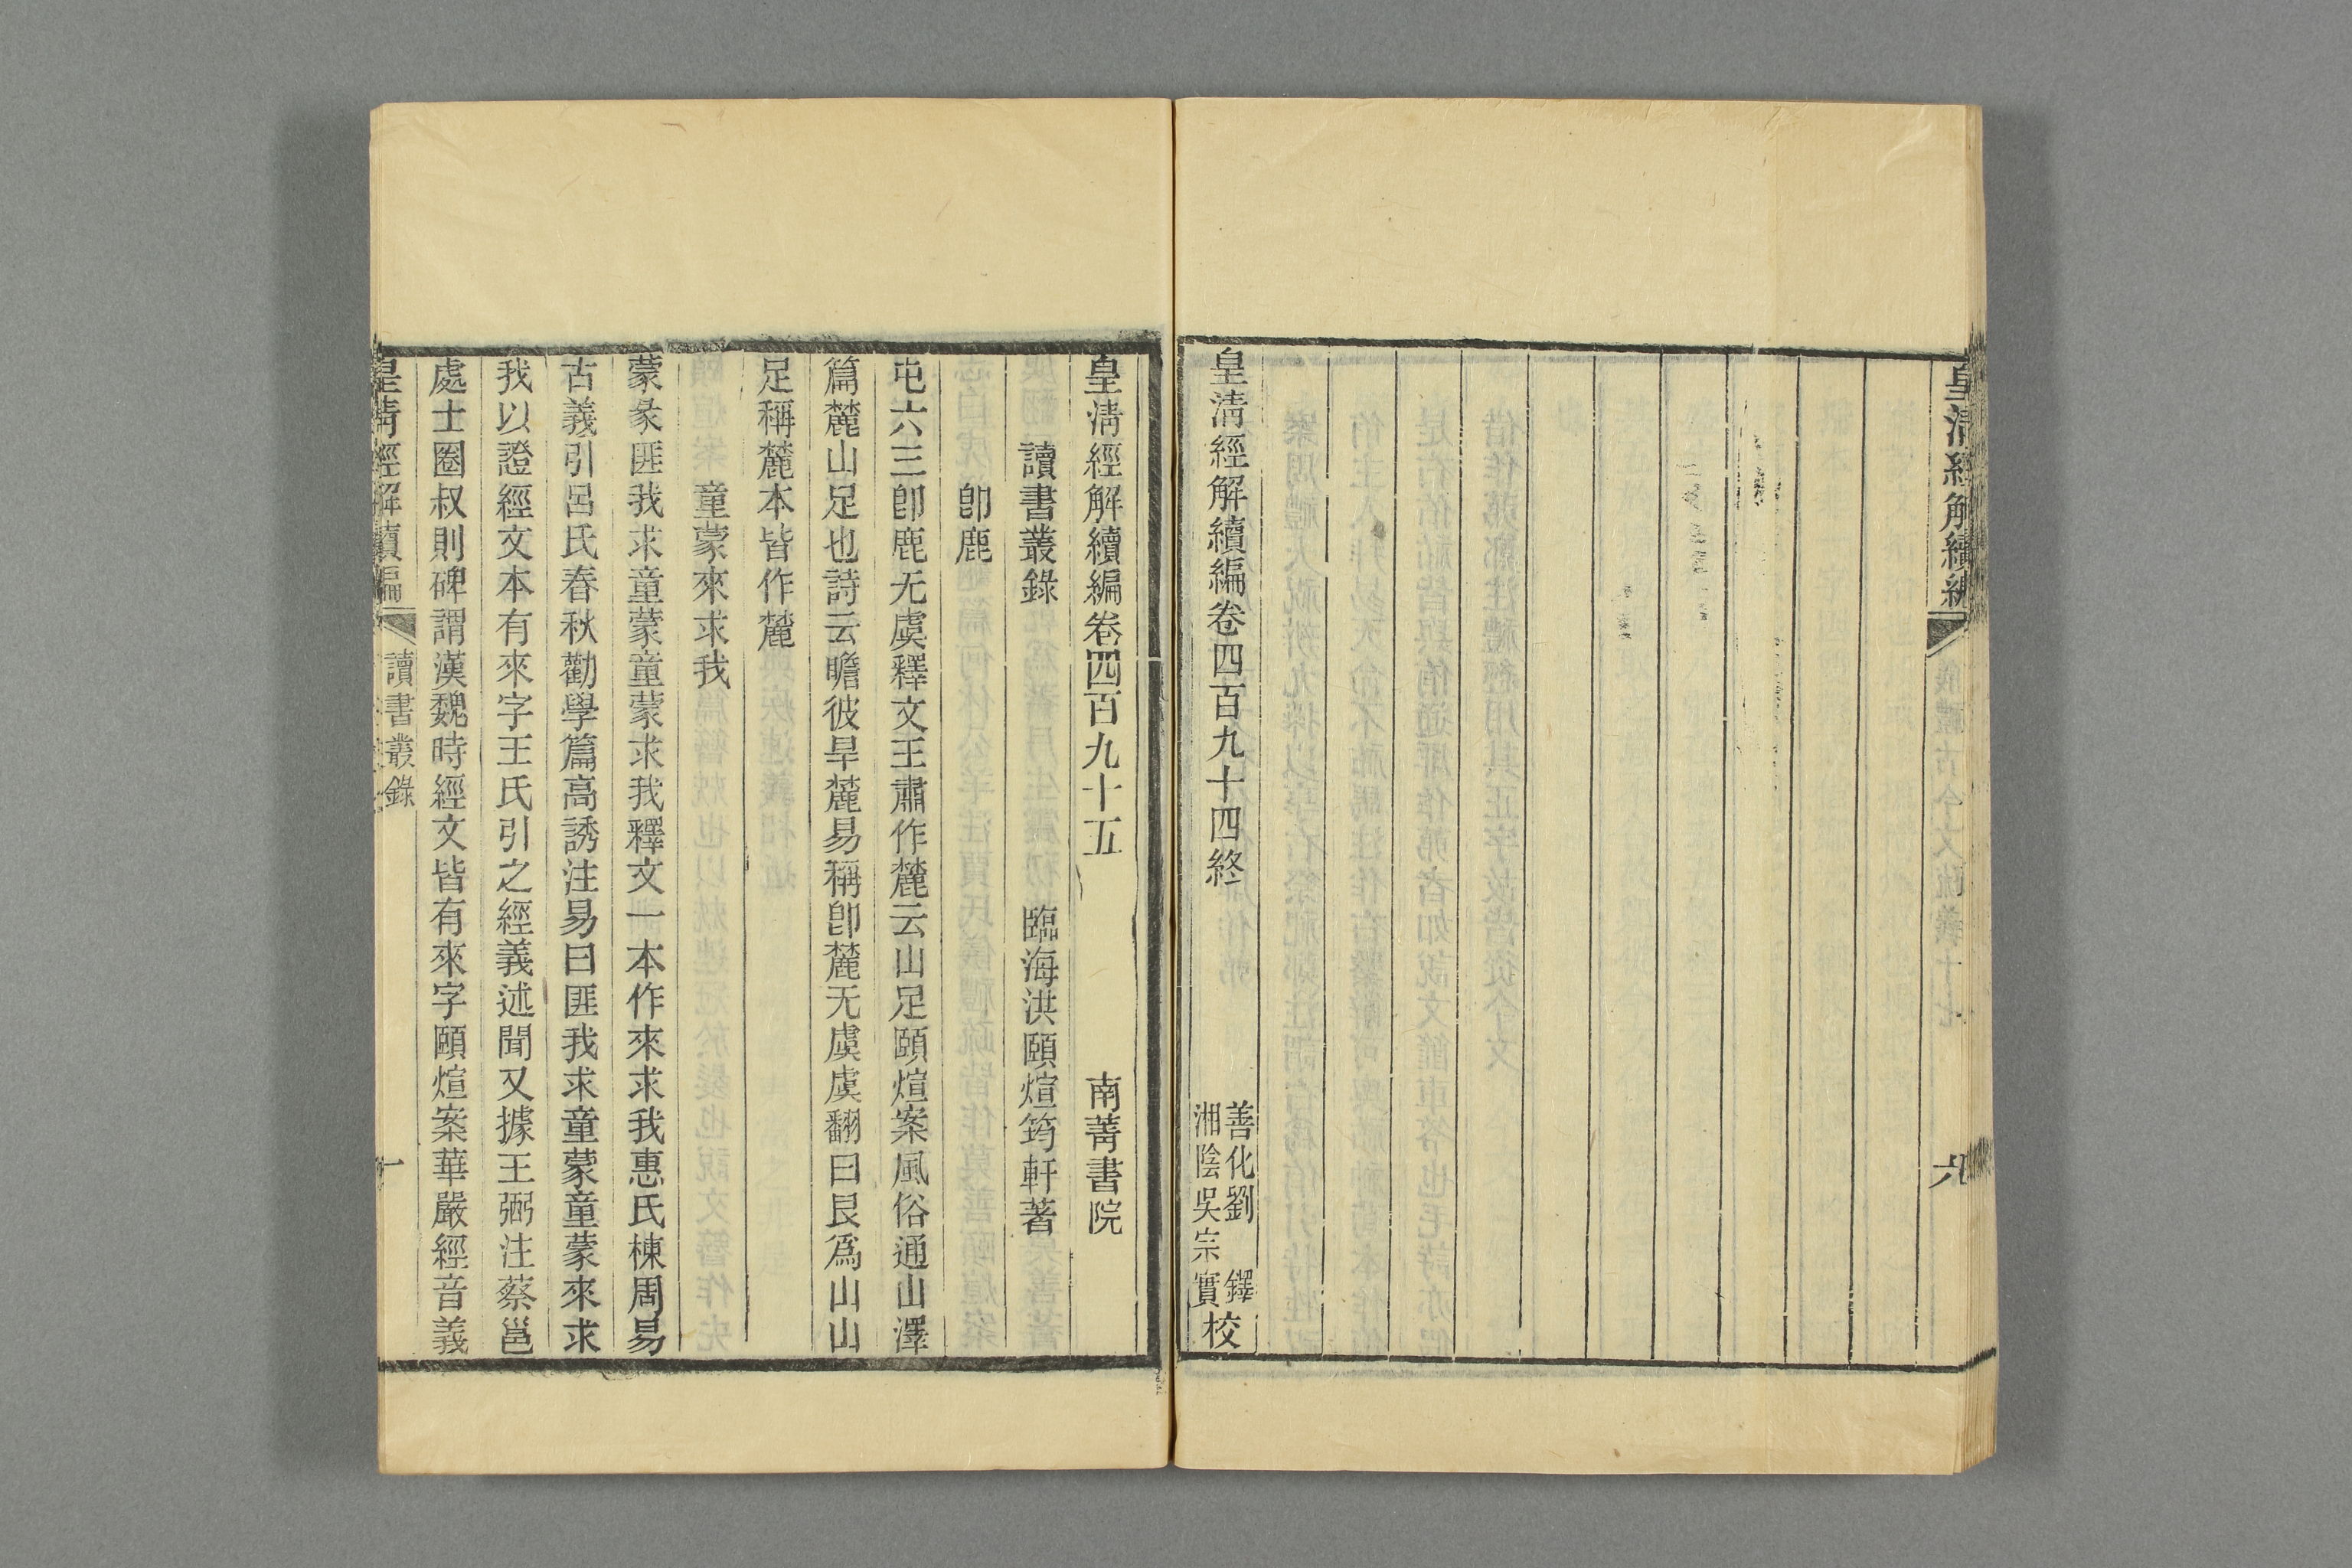 皇清經解續編
六
皇清經解續編卷四百九十四終
善化劉 鐸
湘陰吳宗實校
皇清經解續編卷四百九十五 南菁書院
讀書叢錄 臨海洪頤煊筠軒著
卽鹿
屯六三卽鹿无虞釋文王肅作麓云山足頤煊案風俗通山澤
篇麓山足也詩云瞻彼旱麓易稱卽麓无虞虞翻曰艮爲山山
足稱麓本皆作麓
童蒙來求我
蒙彖匪我求童蒙童蒙求我釋文一本作來求我惠氏棟周易
古義引呂氏春秋勸學篇高誘注易曰匪我求童蒙童蒙來求
我以證經文本有來字王氏引之經義述聞又據王弼注蔡邕
處士圈叔則碑謂漢魏時經文皆有來字頤煊案華嚴經音義
皇清經解續編 讀書叢錄 一